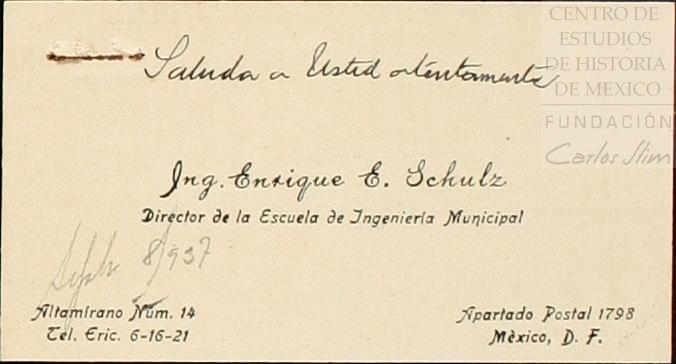 CENTRO DE
ESTUDIOS
DE HISTORIA
DE MEXICO
FUNDACIÓN
Carlos Slim
Saluda a Usted atentamente
Ing. Enrique E. Schulz
Director de la Escuela de Ingeniería Municipal
8/937
Altamirano Núm. 14
Tel. Eric. 6-16-21
Apartado Postal 1798
México, D. F.